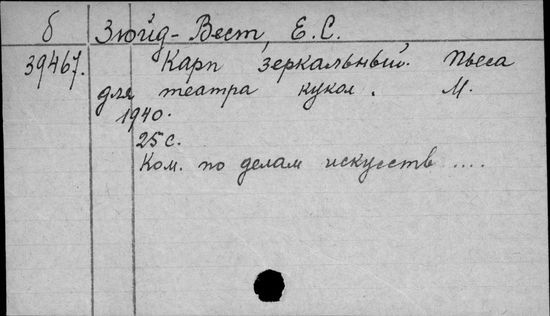 б Зюйд-Вест, Е.С.
39467. Карп зеркальный. Пьеса
для театра кукол. М.
1940.
25с.
Ком. по делам искусств ....